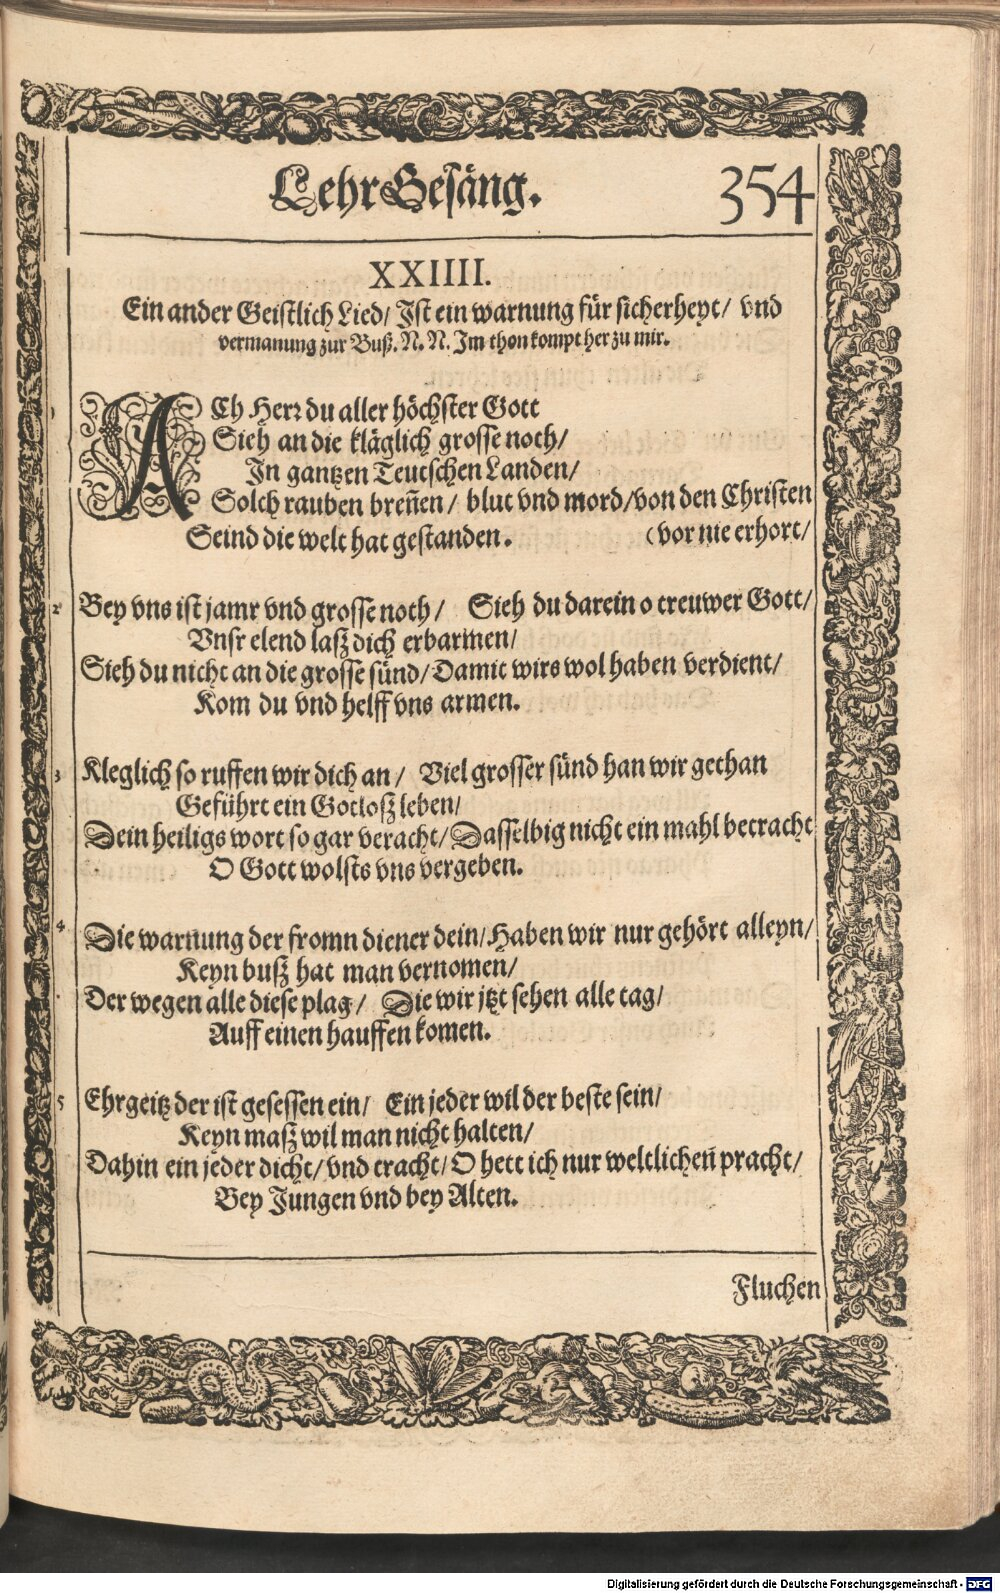 LehrGesäng. 354
XXIIII.
Ein ander Geistlich Lied/ Ist ein warnung für sicherheyt/ vnd
vermanung zur Buß. N. N. Im thon kompt her zu mir.
ACh Herr du aller höchster Gott
Sieh an die kläglich grosse noth/
In gantzen Teutschen Landen/
Solch rauben breñen/ blut vnd mord/ von den Christen
Seind die welt hat gestanden. (vor nie erhort/
2 Bey vns ist jamr vnd grosse noth/ Sieh du darein o treuwer Gott/
Vnsr elend laß dich erbarmen/
Sieh du nicht an die grosse sünd/ Damit wirs wol haben verdient/
Kom du vnd helff vns armen.
3 Kleglich so ruffen wir dich an/ Viel grosser sünd han wir gethan
Geführt ein Gotloß leben/
Dein heiligs wort so gar veracht/ Dasselbig nicht ein mahl betracht
O Gott wolsts vns vergeben.
4 Die warnung der fromn diener dein/ Haben wir nur gehört alleyn/
Keyn buß hat man vernomen/
Der wegen alle diese plag/ Die wir jtzt sehen alle tag/
Auff einen hauffen komen.
5 Ehrgeitz der ist gesessen ein/ Ein jeder wil der beste sein/
Keyn maß wil man nicht halten/
Dahin ein jeder dicht/ vnd tracht/ O hett ich nur weltlicheñ pracht/
Bey Jungen vnd bey Alten.
Fluchen
Digitalisierung gefördert durch die Deutsche Forschungsgemeinschaft - DFG